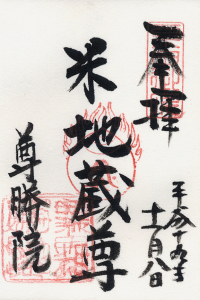 奉拝
平成十九年
十一月八日
米地蔵尊
尊勝院